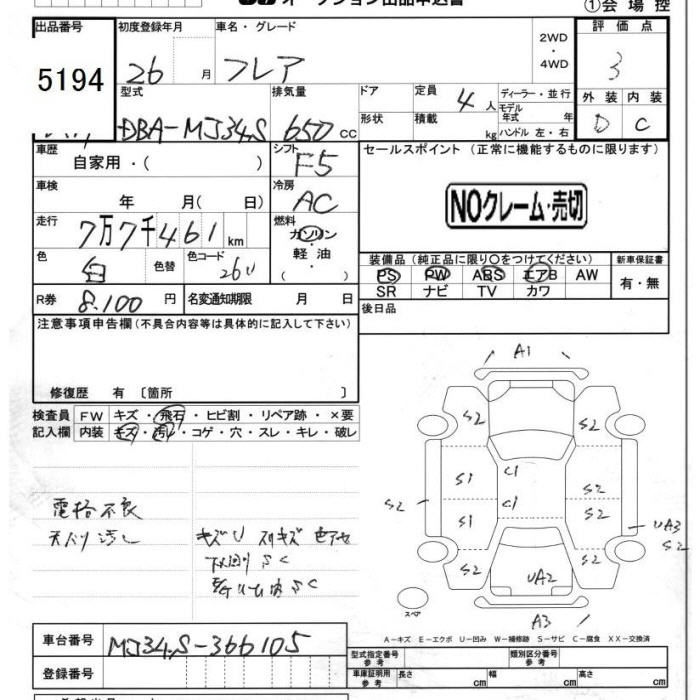 ①会場控
出品番号
5194
初度登録年月
26 月
車名・グレード
フレア
2WD
・
4WD
評価点
3
外装 内装
D C
型式
DBA-MJ34S
排気量
650 cc
ドア
形状
定員
4 人
積載
kg
ディーラー・並行
モデル
年式 年
ハンドル 左・右
車歴
自家用・( )
シフト
F5
セールスポイント (正常に機能するものに限ります)
NOクレーム・売切
車検
年 月( 日)
冷房
AC
走行
7万7千461km
燃料
ガソリン
・
軽油
( ・ )
色
白
色替
色コード
26U
装備品(純正品に限り○をつけてください)
PS PW ABS エアB AW
SR ナビ TV カワ
新車保証書
有・無
R券 8,100 円
名変通知期限 月 日
後日品
注意事項申告欄(不具合内容等は具体的に記入して下さい)
修復歴 有 〔箇所 〕
検査員
記入欄
FW キズ・飛石・ヒビ割・リペア跡・×要
内装 キズ・汚レ・コゲ・穴・スレ・キレ・破レ
電格不良
キズU スリキズ 色アセ
下回りSC
A1
S2 S2
S1 C1 S2
S2 S1 C1 S2 UA3
S2
S2 UA2 S2
スペア
A3
A-キズ E-エクボ U-凹み W-補修跡 S-サビ C-腐食 XX-交換済
車台番号 MJ34S-366105
登録番号
型式指定番号
参考
類別区分番号
参考
車庫証明用
参考
長さ cm
幅 cm
高さ cm